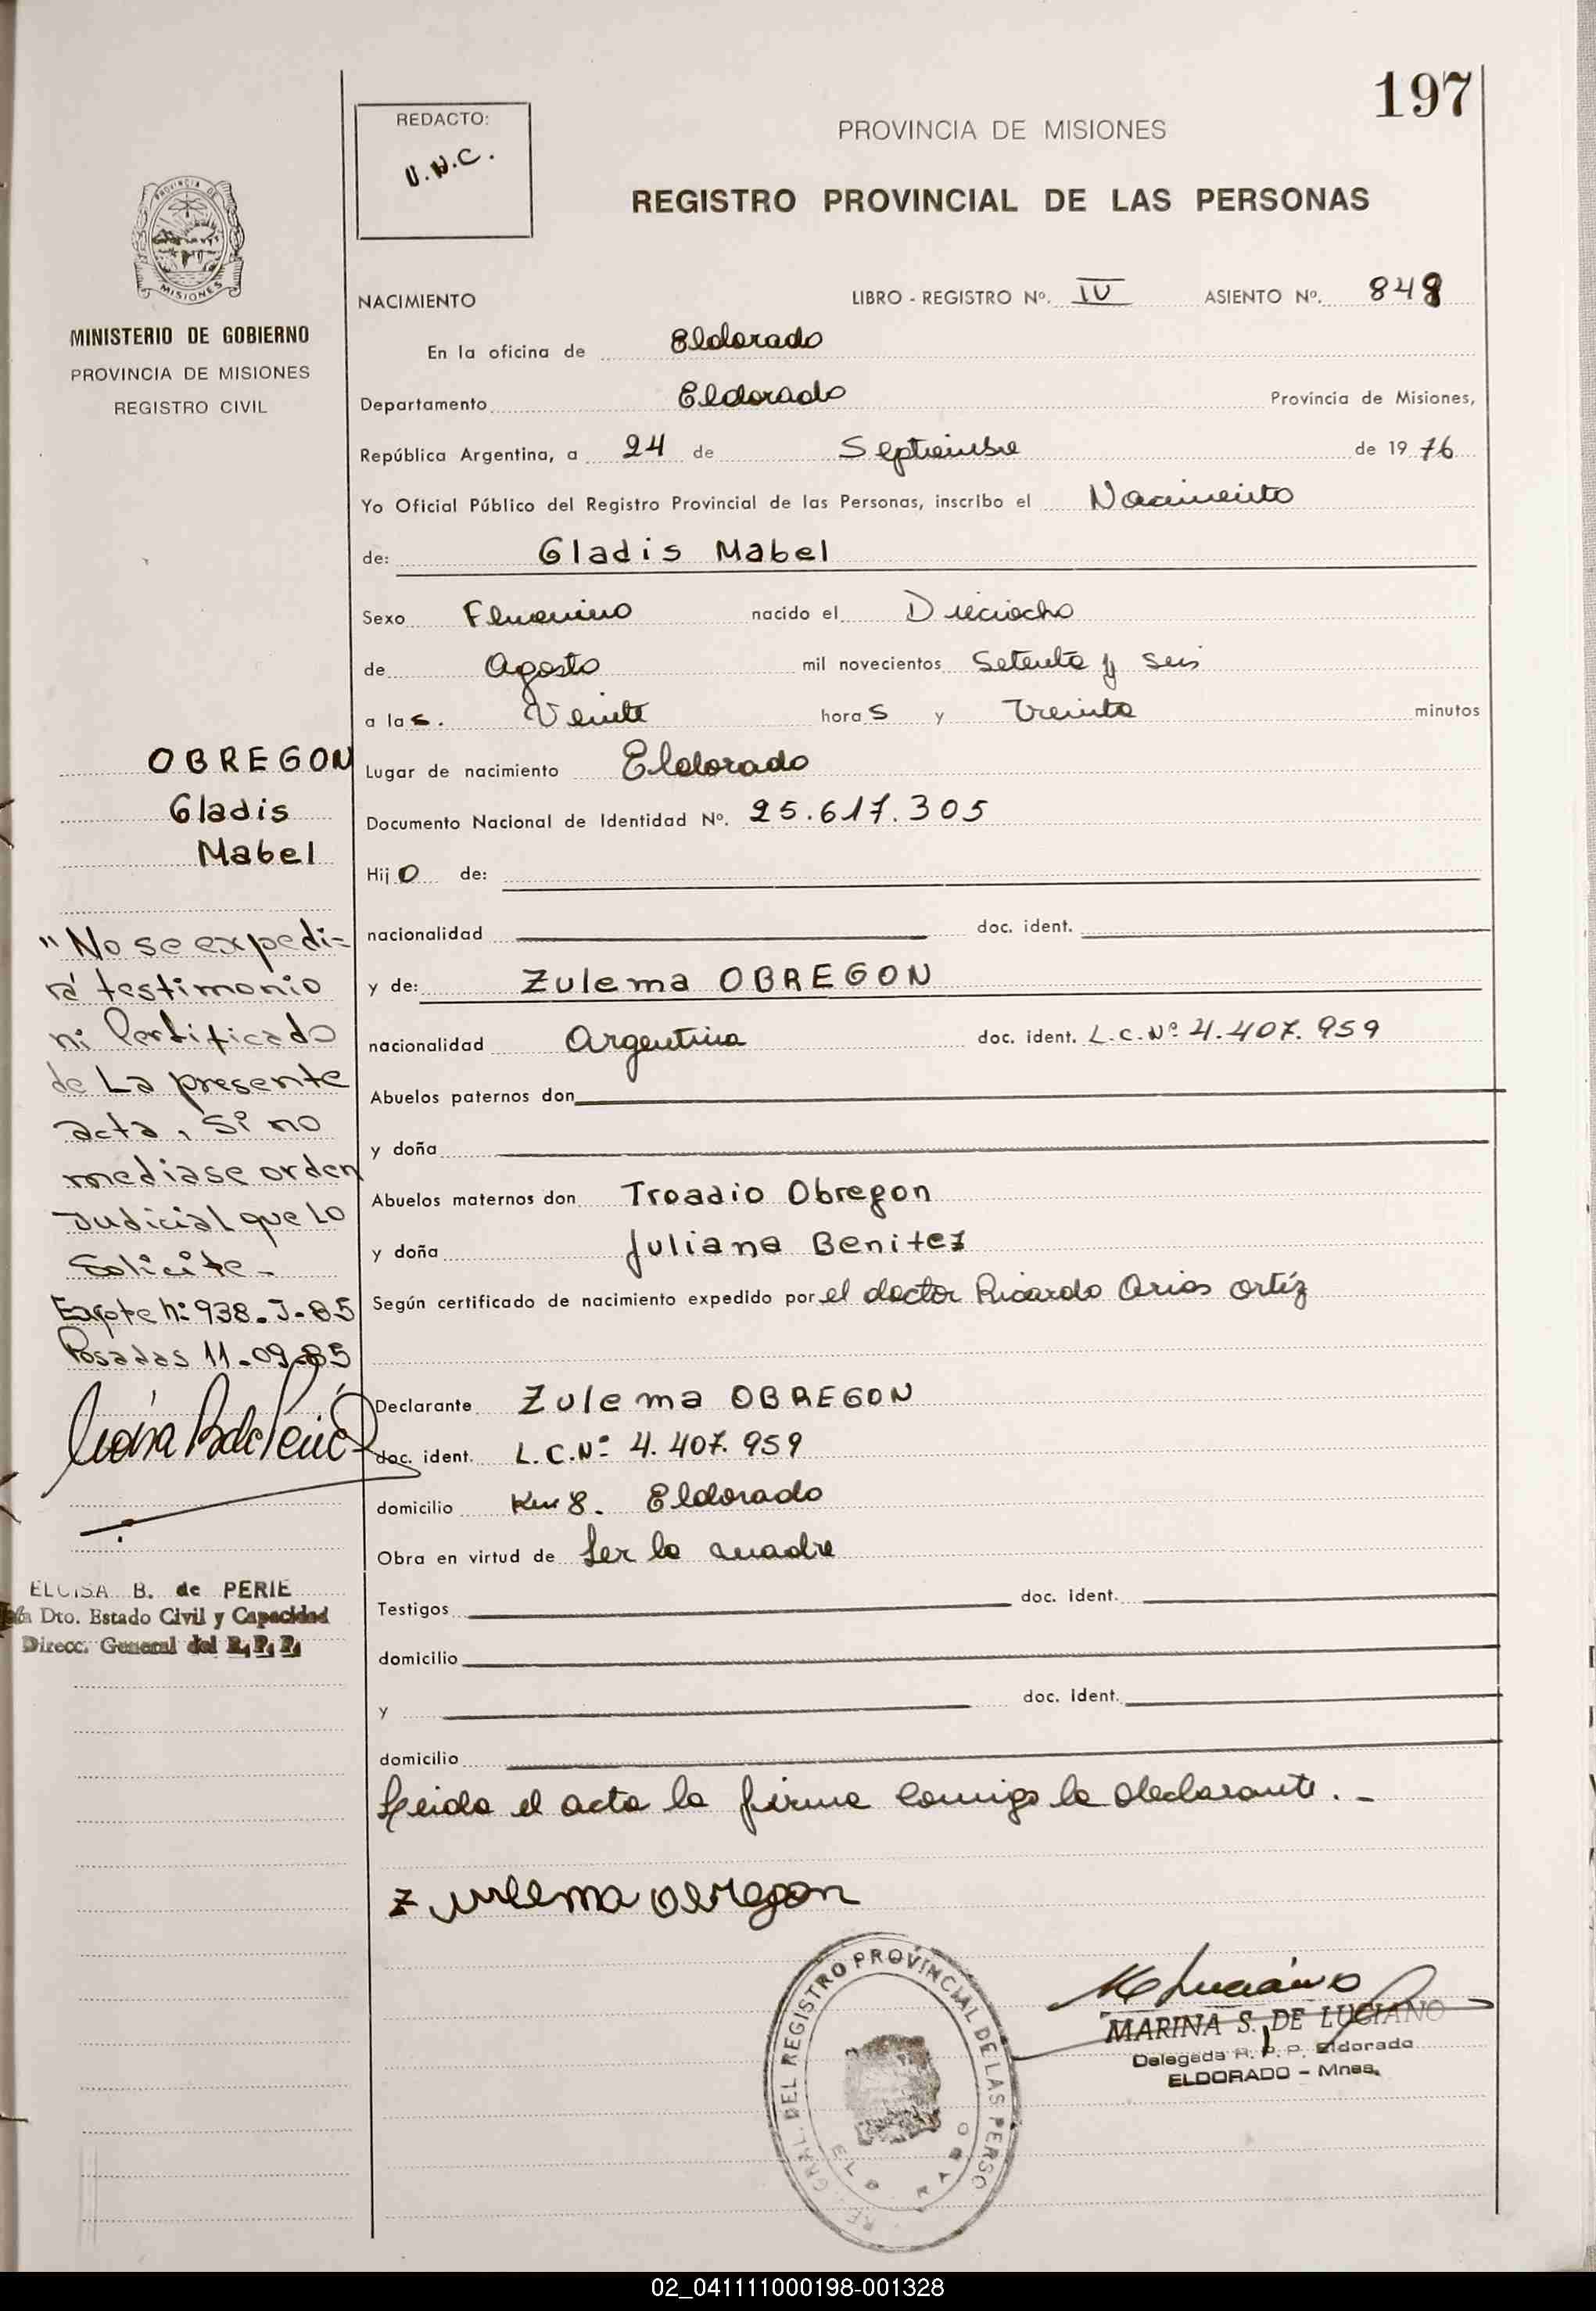 197
REDACTO:
U.N.C.
PROVINCIA DE MISIONES
REGISTRO PROVINCIAL DE LAS PERSONAS
PROVINCIA DE
MISIONES
MINISTERIO DE GOBIERNO
PROVINCIA DE MISIONES
REGISTRO CIVIL
NACIMIENTO LIBRO - REGISTRO Nº. IV ASIENTO Nº. 848
En la oficina de Eldorado
Departamento Eldorado Provincia de Misiones,
República Argentina, a 24 de Septiembre de 1976
Yo Oficial Público del Registro Provincial de las Personas, inscribo el Nacimiento
de: Gladis Mabel
Sexo Femenino nacido el Dieciocho
de Agosto mil novecientos Setenta y seis
a las. Veinte horas y Treinta minutos
Lugar de nacimiento Eldorado
Documento Nacional de Identidad Nº. 25.617.305
Hijo de:
nacionalidad doc. ident.
y de: Zulema OBREGON
nacionalidad Argentina doc. ident. L.C.Nº 4.407.959
Abuelos paternos don
y doña
Abuelos maternos don Troadio Obregon
y doña Juliana Benitez
Según certificado de nacimiento expedido por el doctor Ricardo Arias Ortíz
Declarante Zulema OBREGON
doc. ident. L.C.Nº 4.407.959
domicilio Km 8. Eldorado
Obra en virtud de Ser la madre
Testigos doc. ident.
domicilio
y doc. ident.
domicilio
Leida el acta la firma conmigo la declarante.-
Zulema obregon
OBREGON
Gladis
Mabel
"No se expedi=
rá testimonio
ni Certificado
de La presente
acta, Si no
mediase orden
Judicial que Lo
Solicite-
Expte Nº 938-J-85
Posadas 11-09-85
ELOISA B. de PERIE
Dto. Estado Civil y Capacidad
Direcc. General del R.P.P.
GRAL. DEL REGISTRO PROVINCIAL DE LAS PERSO
MARINA S. DE LUCIANO
Delegada R.P.P. Eldorado
ELDORADO - Mnes.
02_041111000198-001328